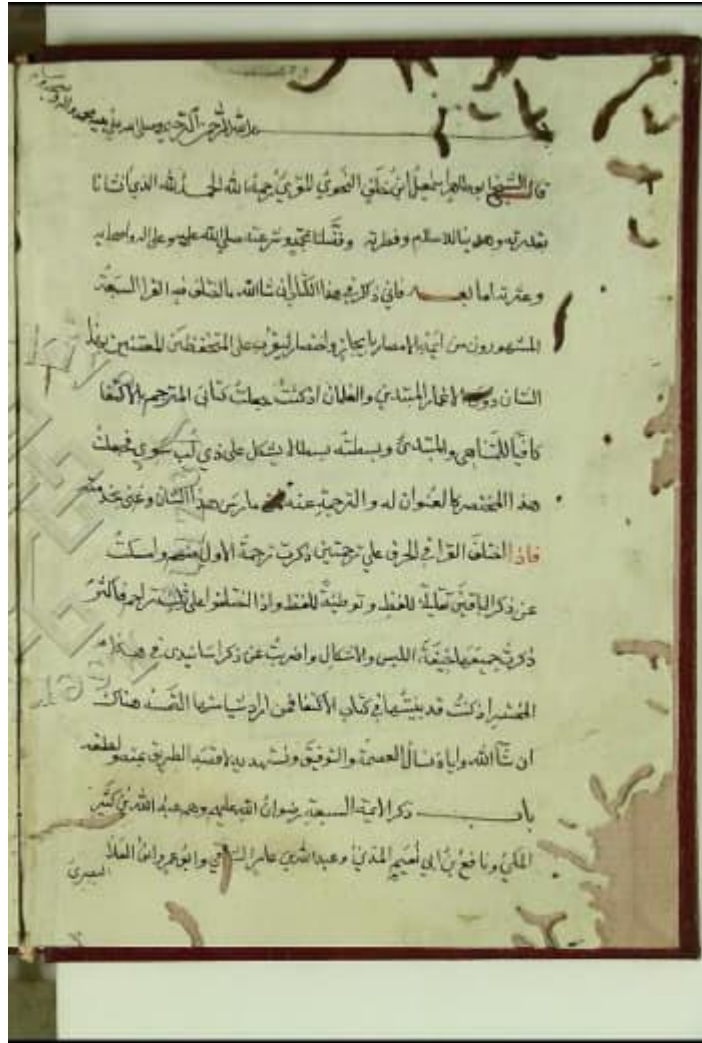 بسم الله الرحمن الرحيم وصلى الله على سيدنا محمد واله وصحبه
قال الشيخ ابو طاهر اسمعيل ابن خلف النحوي المقري رحمه الله الحمد لله الذي انشانا
بقدرته وهدينا للاسلام وفطرته وفضلنا بمحمد وشرعته صلى الله عليه وعلى اله واصحابه
وعترته اما بعد فاني ذاكر في هذا الكتاب ان شا الله ما اختلف فيه القرا السبعة
المشهورون من ايمة الامصار بايجاز واختصار ليقرب على المتحفظين المعتنين بهذا
الشان دون الاغمار المبتدين والغلمان اذ كنت جعلت كتابي المترجم بالاكتفا
كافيا للمتناهي والمبتدئ وبسطته بسطا لا يشكل على ذي لب سوي فجعلت
هذا المختصر كالعنوان له والترجمة عنه مارس هذا الشان وعني بخدمته
فاذا اختلف القرا في الحرف على ترجمتين ذكرت ترجمة الاول وامسكت
عن ذكر الباقين للفظ وتوطية للحفظ واذا اختلفوا على ثلث تراجم فاكثر
ذكرت جميعها خيفة اللبس والاشكال واضربت عن ذكر اسانيدي في هذا
المختصر اذ كنت قد بينتها في كتاب الاكتفا فمن اراد شيا منها التمسه هناك
ان شا الله واياه نسال العصمة والتوفيق ونستهديه لاقصد الطريق بمنه ولطفه
باب ذكر الايمة السبعة رضوان الله عليهم وهم عبد الله بن كثير
المكي ونافع بن ابي نعيم المدني وعبد الله بن عامر الشامي وابو عمرو ابن العلا
البصري